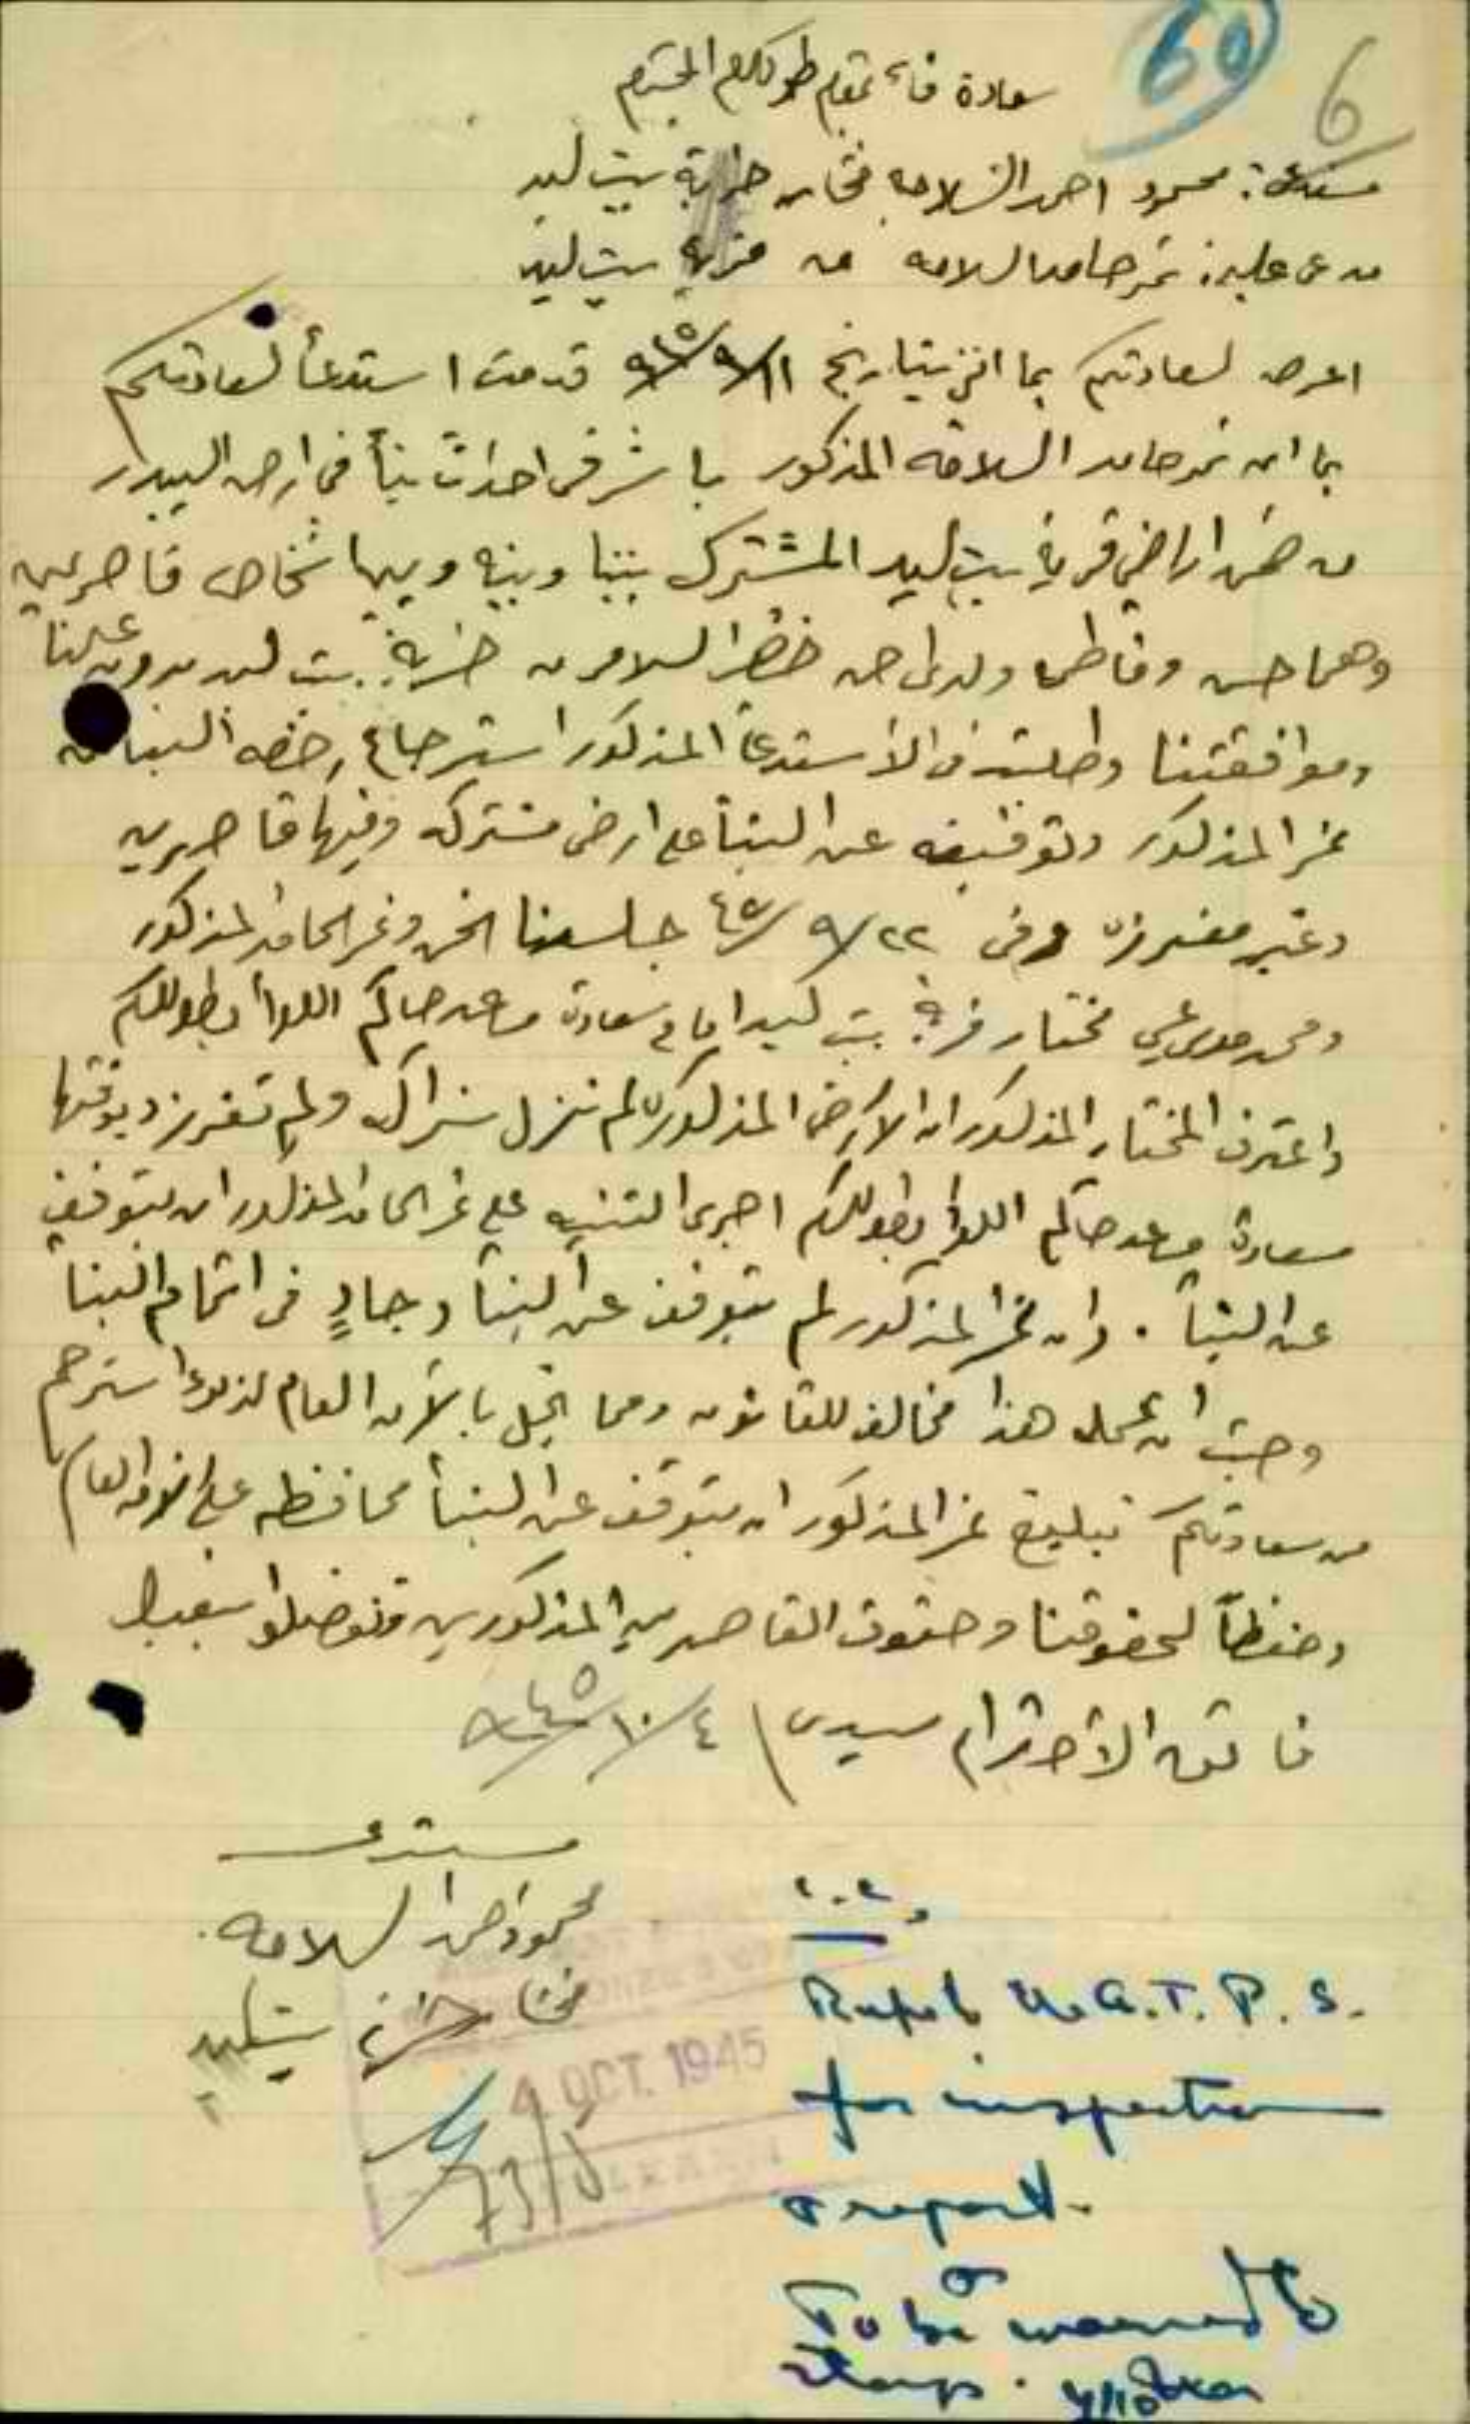 60
6
سعادة قائمقام طولكرم المحترم
مستدعي: محمود احمد السلامه مختار خربة بيت ليد
مدعى عليه: نمر حامد السلامه من خربة بيت ليد
اعرض لسعادتكم بما انني بتاريخ ١١/٩/٩٤٥ قدمت استدعأ لسعادتكم
بما ان نمر حامد السلامه المذكور باشر في احداث بنأ في ارض البيدر
من ضمن اراضي قرية بيت ليد المشترك بيننا وبينه وبيها اشخاص قاصرين
وهما حسن وفاطمه ولدى خضر السلامه من خربة بيت ليد بدون علمنا
وموافقتنا وطلبت في الأستدعأ المذكور استرجاع رخصه البنا من
نمر المذكور وتوقيفه عن البنأ على ارض مشتركه وفيها قاصرين
وغير مفرزه وفي ٢٢/٩/٤٥ جلسنا نحن ونمر الحامد المذكور
ومحمد مختار قرية بيت ليد امام سعادة مساعد حاكم اللوأ بطولكرم
واعترف المختار المذكور ان الأرض المذكوره لم تزل شراكه ولم تفرز وبوقتها
سعادة مساعد حاكم اللوأ بطولكرم اجرى التنبيه على نمر الحامد المذكور ان يتوقف
عن البنأ . وان نمر المذكور لم يتوقف عن البنأ وجادٍ في اتمام البنا
وحيث ان عمله هذا مخالف للقانون ومما يخل بالأمن العام لذلك استرحم
من سعادتكم تبليغ نمر المذكور ان يتوقف عن البنأ محافظه على الأمن العام
وحفظاً لحقوقنا وحقوق القاصرين المذكورين وتفضلوا بقبول
فائق الأحترام سيدي ٤/١٠/٩٤٥
مستدعي
محمود احمد السلامه
مختار خربة بيت ليد
4 OCT. 1945
73/5
A.T.P.S.
for inspection
& report.
To be warned to
stop. 4/10